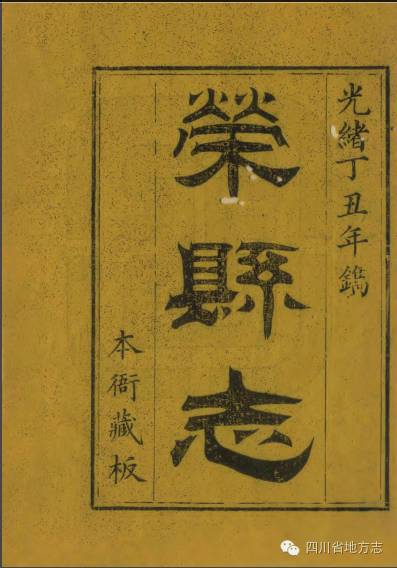 光緒丁丑年鐫
榮縣志
本衙藏板
四川省地方志